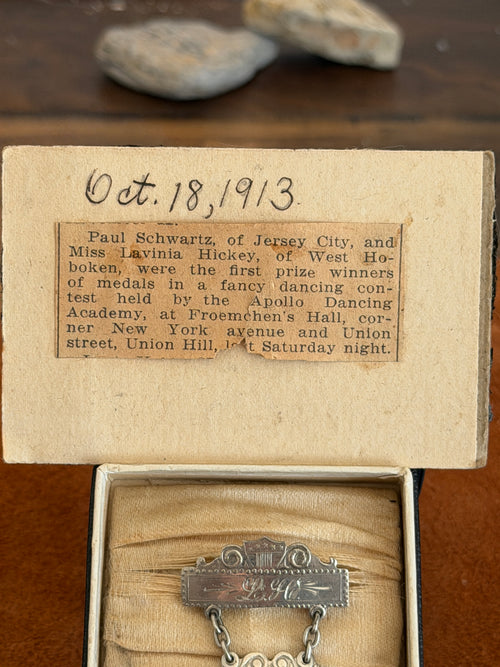 Oct. 18, 1913
Paul Schwartz, of Jersey City, and
Miss Lavinia Hickey, of West Ho-
boken, were the first prize winners
of medals in a fancy dancing con-
test held by the Apollo Dancing
Academy, at Froemchen's Hall, cor-
ner New York avenue and Union
street, Union Hill, last Saturday night.
L. H.